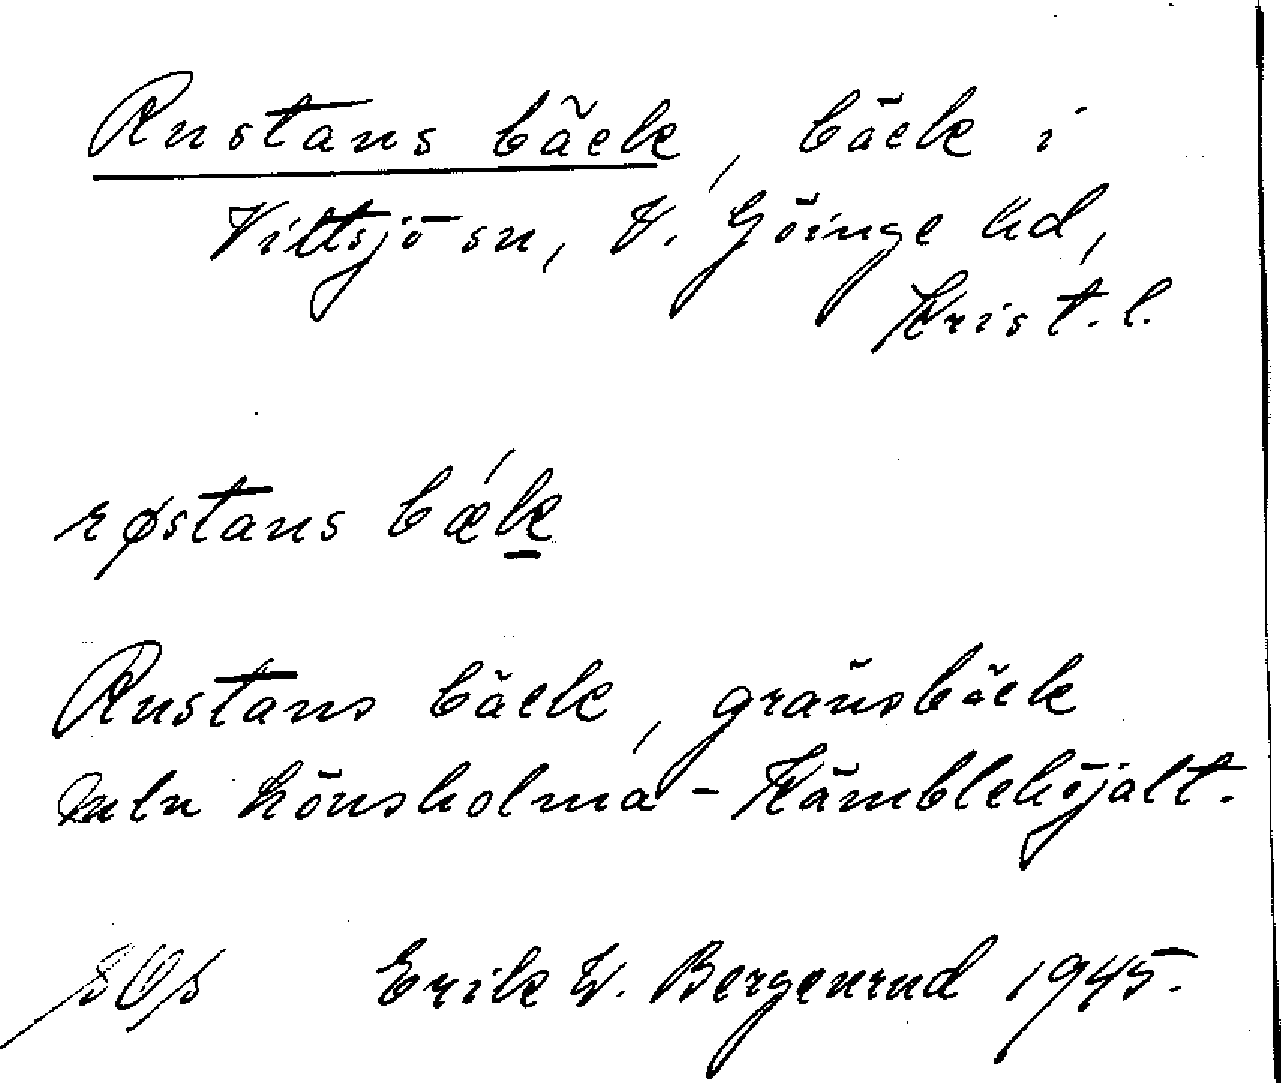 Rustans bäck, bäck i
Vittsjö sn, V. Göinge hd,
Krist. l.
røstans bǽk
Rustans bäck, gränsbäck
meln hönsholma - Kämblehöjalt.
Erik W. Bergenrud 1945.